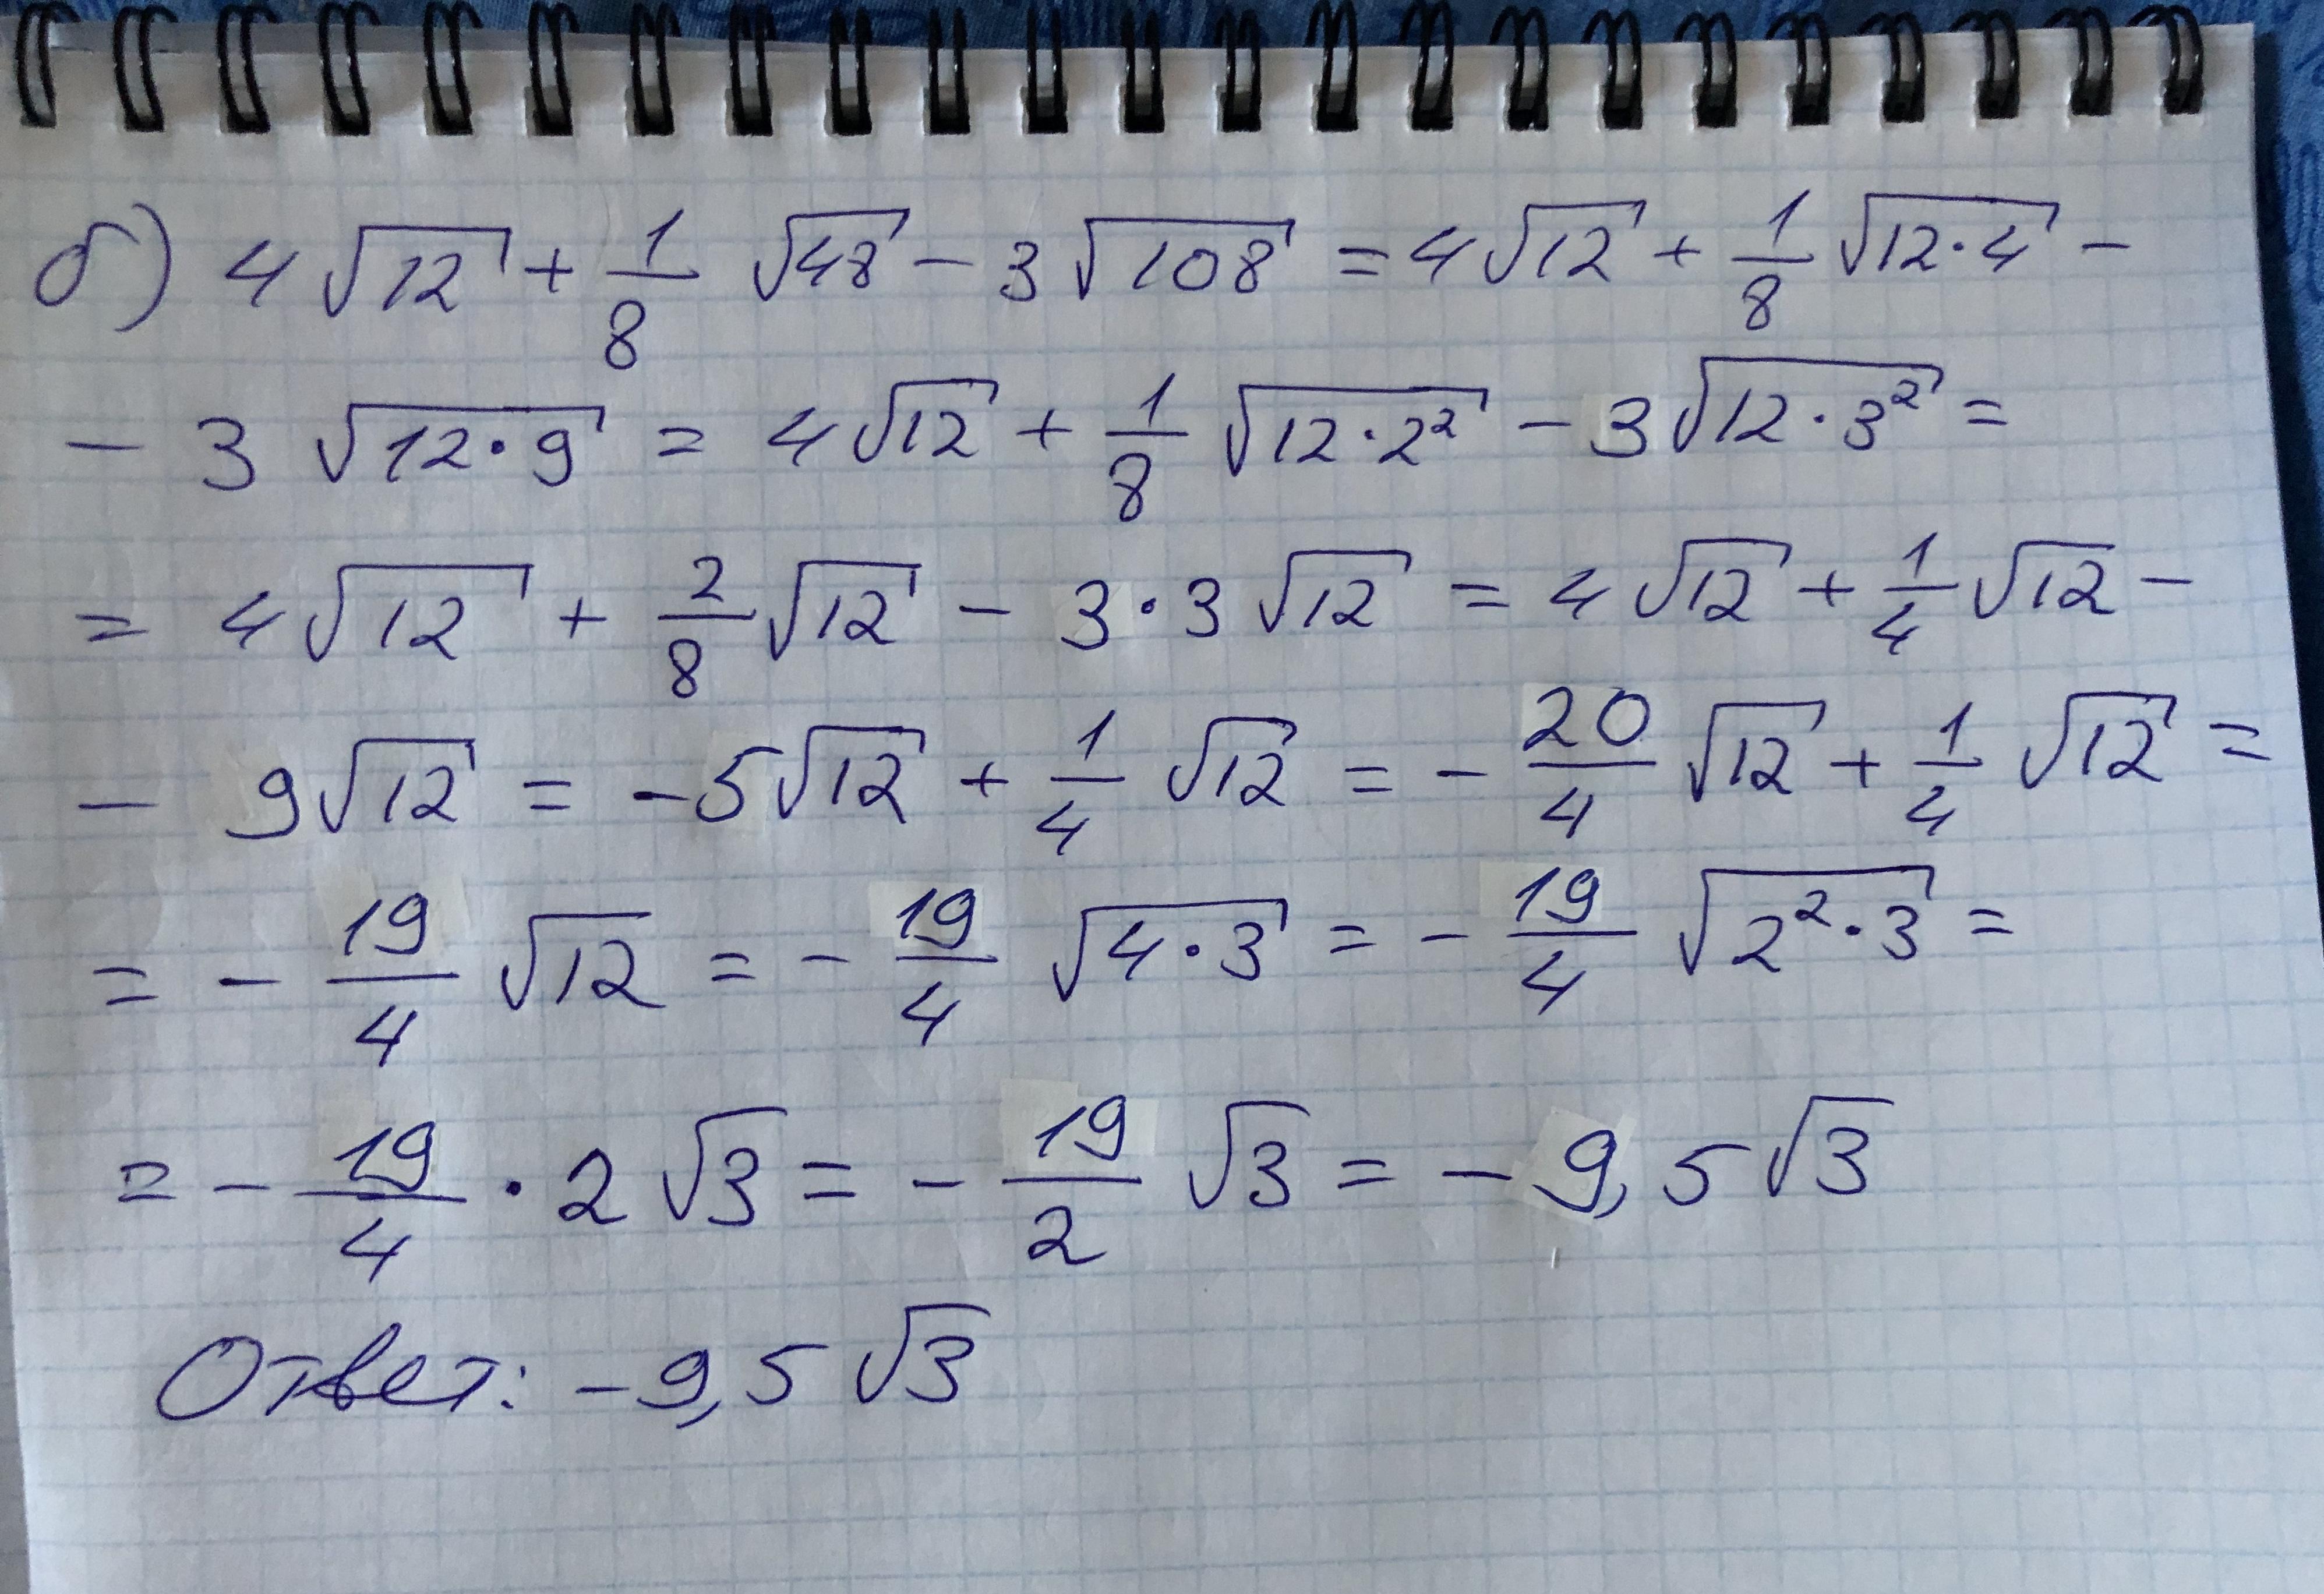 б) 4√12 + 1/8 √48 − 3√108 = 4√12 + 1/8 √(12·4) −
− 3 √(12·9) = 4√12 + 1/8 √(12·2²) − 3√(12·3²) =
= 4√12 + 2/8 √12 − 3·3√12 = 4√12 + 1/4 √12 −
− 9√12 = −5√12 + 1/4 √12 = − 20/4 √12 + 1/4 √12 =
= − 19/4 √12 = − 19/4 √(4·3) = − 19/4 √(2²·3) =
= − 19/4 · 2√3 = − 19/2 √3 = − 9,5√3
Ответ: −9,5√3